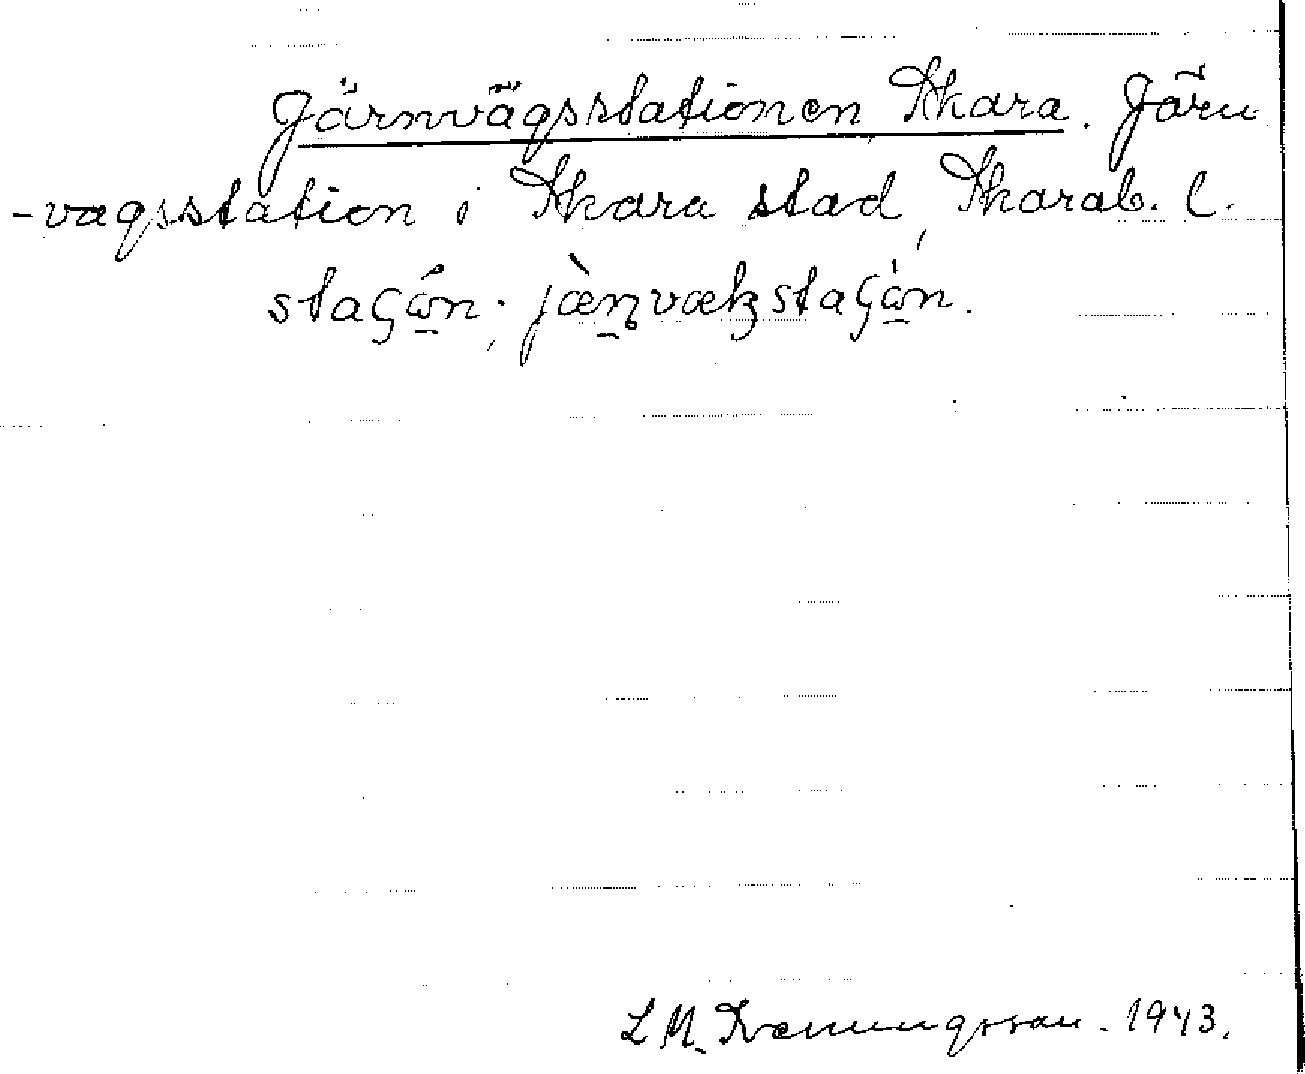 Järnvägsstationen, Skara. Järn
-vagsstation i Skara stad, Skarab. l.
staʕώ̲n; jæ̀n̲vækstaʕώ̲n.
L M. 1943.